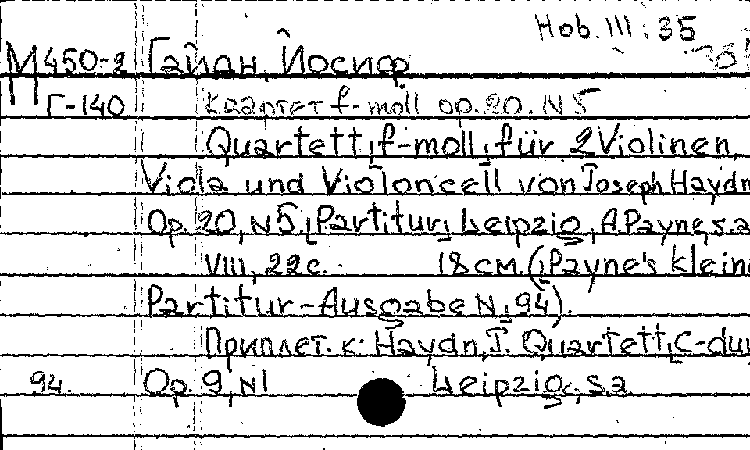 Hob. III : 35
М450-2 Гайдн, Йосиф
Г-140 Квартет f-moll op. 20. N 5
Quartett, f-moll, für 2 Violinen,
Viola und Violoncell von Joseph Haydn
Op. 20, N 5. Partitur, Leipzig, A. Payne, s.a
VIII, 22 c. 18 см. (Payne's klein
Partitur-Ausgabe N. 94).
Приплет. к: Haydn, J. Quartett, C-dur
94. Op. 9, N1 Leipzig, s.a